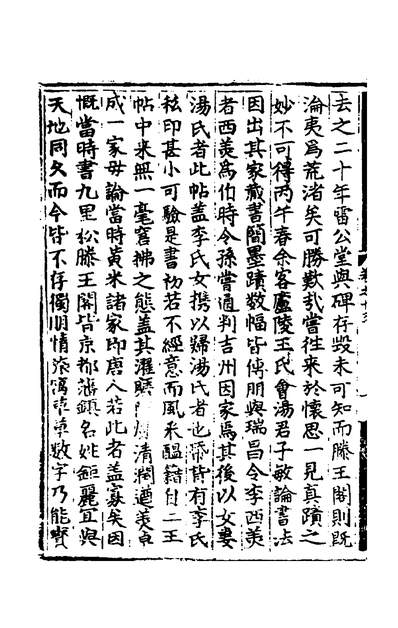 去之二十年雷公堂與碑存毀未可知而滕王閣則既
淪夷爲荒渚矣可勝歎哉嘗徃來於懷思一見真蹟之
妙不可得丙午春余客廬陵王氏會湯君子敏論書法
因出其家藏書簡墨蹟数幅皆傅朋與瑞昌令李西美
者西美爲伯時令孫嘗通判吉州因家焉其後以女妻
湯氏者此帖盖李氏女携以歸湯氏者也帋背有李氏
祑印甚小可驗是書初若不經意而風釆醖籍自二王
帖中来無一毫窘拂之態盖其濯 清閟遒美卓
成一家毋論當時黄米諸家即唐人若此者盖寡矣因
慨當時書九里松滕王閣皆京都藩鎮名姓鉅麗宜與
天地同久而今皆不存獨朋情旅寓草草数字乃能寳